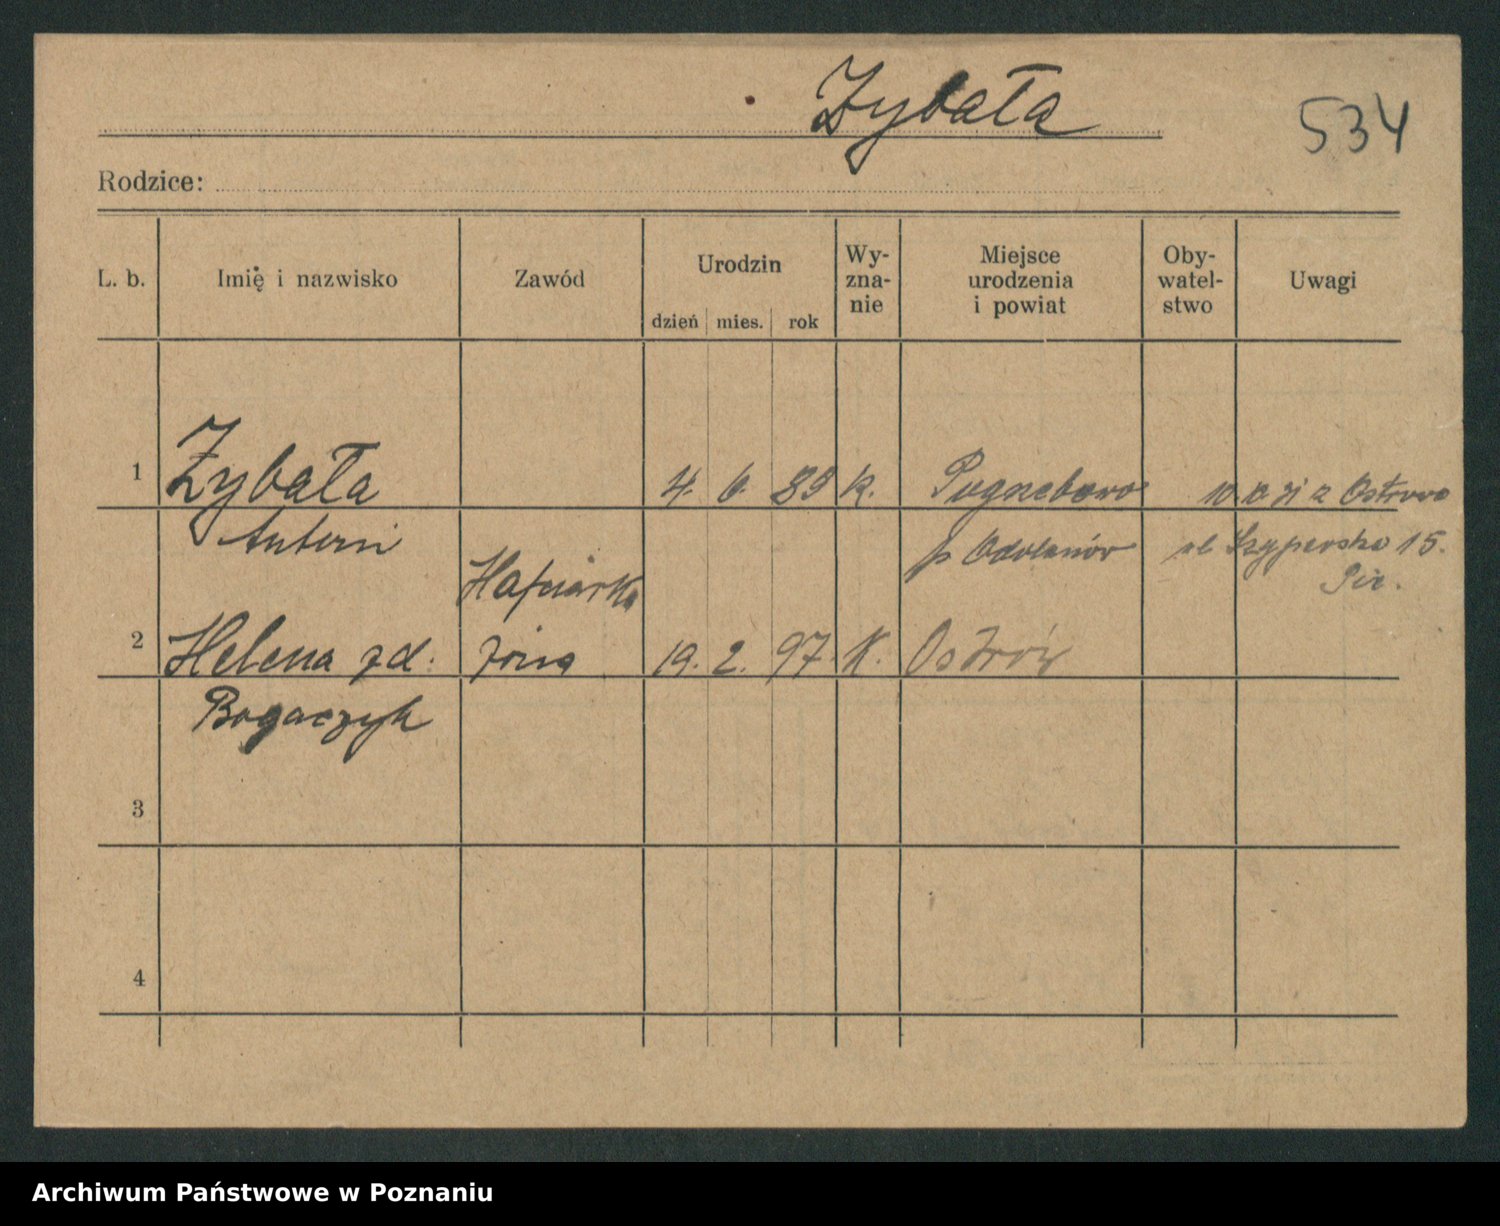 Zybała
534
Rodzice:
L. b. Imię i nazwisko Zawód Urodzin dzień mies. rok Wy-zna-nie Miejsce urodzenia i powiat Oby-watel-stwo Uwagi
1 Zybała 4. 6. 89 k. 10. z Ostrowa
Antoni p Odolanów ul 15.
Hafciarka
2 Helena zd. żona 19. 2. 97 K. Ostrów
Bogaczyk
3
4
Archiwum Państwowe w Poznaniu